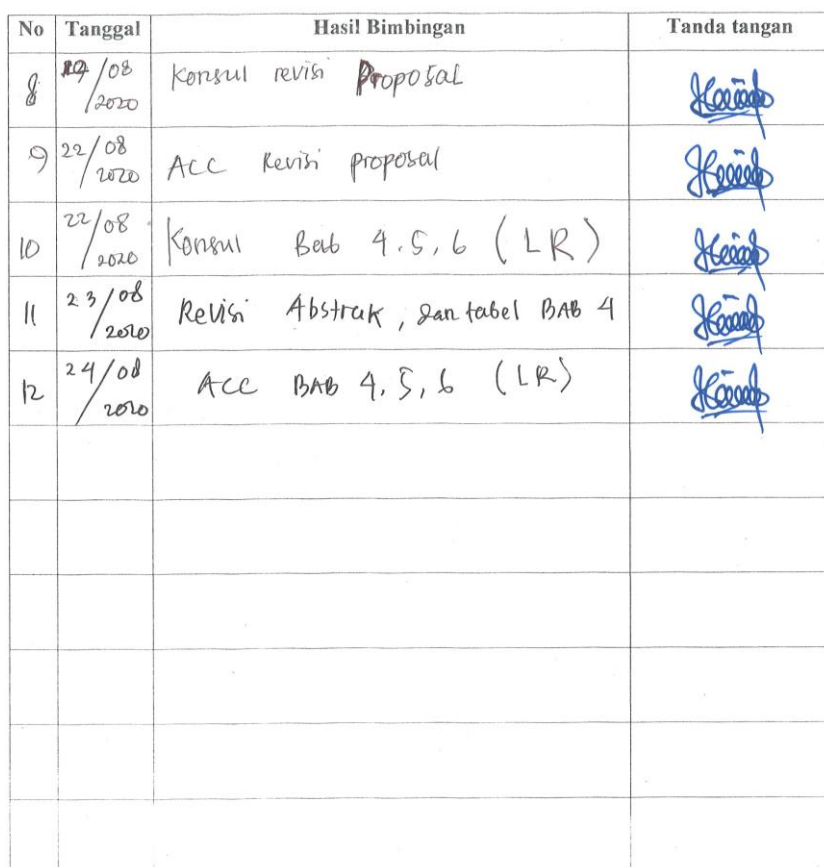 No Tanggal Hasil Bimbingan Tanda tangan
8 19/08/2020 Konsul revisi Proposal
9 22/08/2020 ACC Revisi proposal
10 22/08/2020 Konsul Bab 4.5,6 (LR)
11 23/08/2020 Revisi Abstrak, dan tabel BAB 4
12 24/08/2020 ACC BAB 4,5,6 (LR)